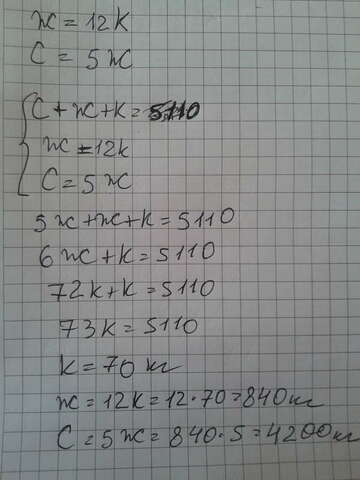 ж = 12k
C = 5ж
C + ж + k = 5110
ж = 12k
C = 5ж
5ж + ж + k = 5110
6ж + k = 5110
72k + k = 5110
73k = 5110
k = 70 кг
ж = 12k = 12 · 70 = 840 кг
C = 5ж = 840 · 5 = 4200 кг